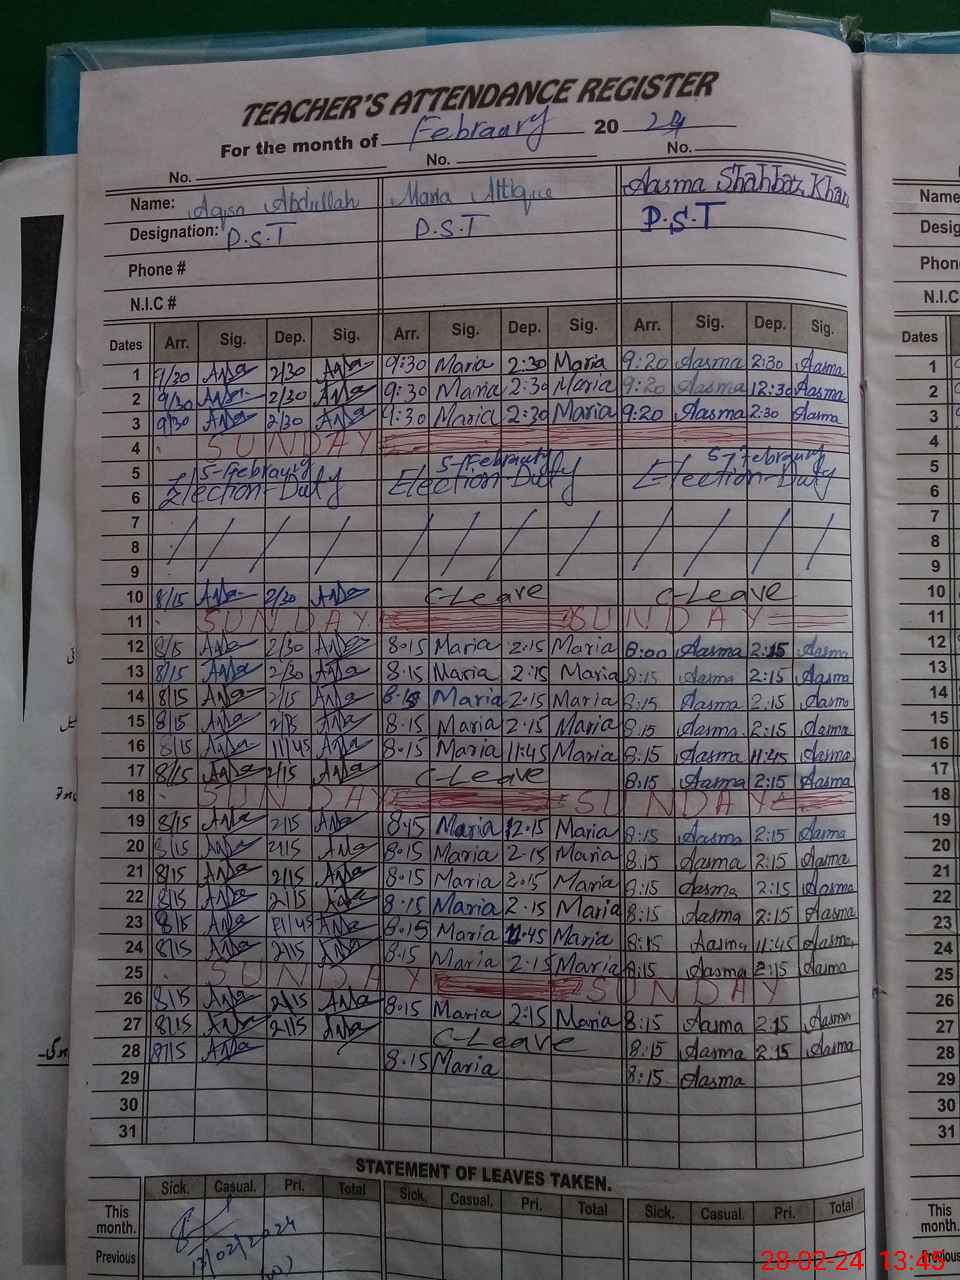 TEACHER'S ATTENDANCE REGISTER
For the month of February 20 24
No. No. No.
Name: Aqisa Abdullah Maria Attique Aasma Shahbaz Khan Name
Designation: P.S.T P.S.T P.S.T Desig
Phone # Phon
N.I.C # N.I.C
Dates Arr. Sig. Dep. Sig. Arr. Sig. Dep. Sig. Arr. Sig. Dep. Sig. Dates
1 9/30 2/30 9:30 Maria 2:30 Maria 9:20 Aasma 2:30 Aasma 1
2 9/30 2/30 9:30 Maria 2:30 Maria 9:20 Aasma 12:30 Aasma 2
3 9/30 2/30 9:30 Maria 2:30 Maria 9:20 Aasma 2:30 Aasma 3
4 SUNDAY 4
5 5-February 5-February 5-February 5
6 Election-Duty Election-Duty Election-Duty 6
7 7
8 8
9 9
10 8/15 2/30 C-Leave C-Leave 10
11 SUNDAY SUNDAY 11
12 8/15 2/30 8.15 Maria 2.15 Maria 8:00 Aasma 2:15 Aasma 12
13 8/15 2/30 8.15 Maria 2.15 Maria 8:15 Aasma 2:15 Aasma 13
14 8/15 2/15 8.15 Maria 2.15 Maria 8:15 Aasma 2:15 Aasma 14
15 8/15 2/15 8.15 Maria 2.15 Maria 8:15 Aasma 2:15 Aasma 15
16 8/15 11/45 8.15 Maria 11:45 Maria 8:15 Aasma 11:45 Aasma 16
17 8/15 2/15 C-Leave 8:15 Aasma 2:15 Aasma 17
18 SUNDAY SUNDAY 18
19 8/15 2/15 8.15 Maria 2.15 Maria 8:15 Aasma 2:15 Aasma 19
20 8/15 2/15 8.15 Maria 2.15 Maria 8:15 Aasma 2:15 Aasma 20
21 8/15 2/15 8.15 Maria 2.15 Maria 8:15 Aasma 2:15 Aasma 21
22 8/15 2/15 8.15 Maria 2.15 Maria 8:15 Aasma 2:15 Aasma 22
23 8/15 11/45 8.15 Maria 11.45 Maria 8:15 Aasma 11:45 Aasma 23
24 8/15 2/15 8.15 Maria 2.15 Maria 8:15 Aasma 2:15 Aasma 24
25 SUNDAY SUNDAY 25
26 8/15 2/15 8.15 Maria 2:15 Maria 8:15 Aasma 2:15 Aasma 26
27 8/15 2/15 C-Leave 8:15 Aasma 2:15 Aasma 27
28 8/15 8.15 Maria 8:15 Aasma 28
29 29
30 30
31 31
STATEMENT OF LEAVES TAKEN.
Sick. Casual. Pri. Total Sick. Casual. Pri. Total Sick. Casual. Pri. Total
This month. This month.
13/02/2024
Previous Previous
28-02-24 13:45